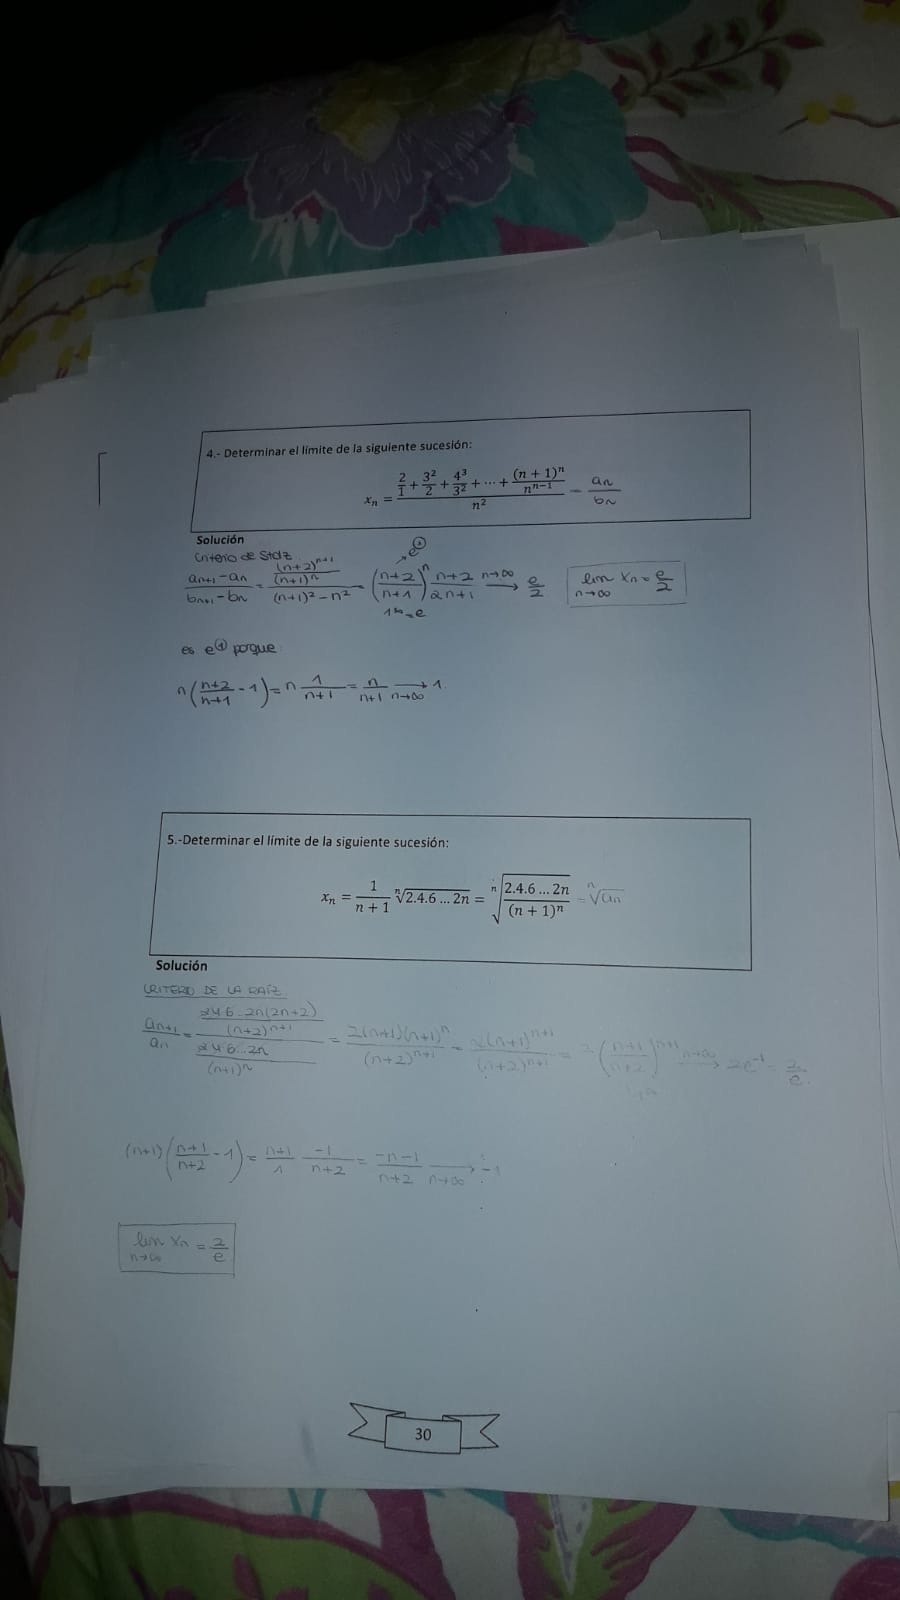 4.- Determinar el límite de la siguiente sucesión:
xₙ = (2/1 + 3²/2 + 4³/3² + ⋯ + (n + 1)ⁿ/nⁿ⁻¹) / n² = aₙ/bₙ
Solución
Criterio de Stolz
(aₙ₊₁ - aₙ)/(bₙ₊₁ - bₙ) = ((n+2)ⁿ⁺¹/(n+1)ⁿ)/((n+1)² - n²) = ((n+2)/(n+1))ⁿ (n+2)/(2n+1) n→∞ → e/2 lim n→∞ xₙ = e/2
↗ e①
1^∞ = e
es e① porque
n((n+2)/(n+1) - 1) = n 1/(n+1) = n/(n+1) → n→∞ 1
5.-Determinar el límite de la siguiente sucesión:
xₙ = 1/(n + 1) ⁿ√(2.4.6 … 2n) = ⁿ√(2.4.6 … 2n/(n + 1)ⁿ) = ⁿ√aₙ
Solución
CRITERIO DE LA RAÍZ
aₙ₊₁/aₙ = (2 4 6 … 2n(2n+2)/(n+2)ⁿ⁺¹)/(2 4 6 … 2n/(n+1)ⁿ) = 2(n+1)(n+1)ⁿ/(n+2)ⁿ⁺¹ = 2(n+1)ⁿ⁺¹/(n+2)ⁿ⁺¹ = 2((n+1)/(n+2))ⁿ⁺¹ n→∞ → 2e⁻¹ = 2/e
1^∞
(n+1)((n+1)/(n+2) - 1) = (n+1)/1 -1/(n+2) = (-n-1)/(n+2) → n→∞ -1
lim n→∞ xₙ = 2/e
30